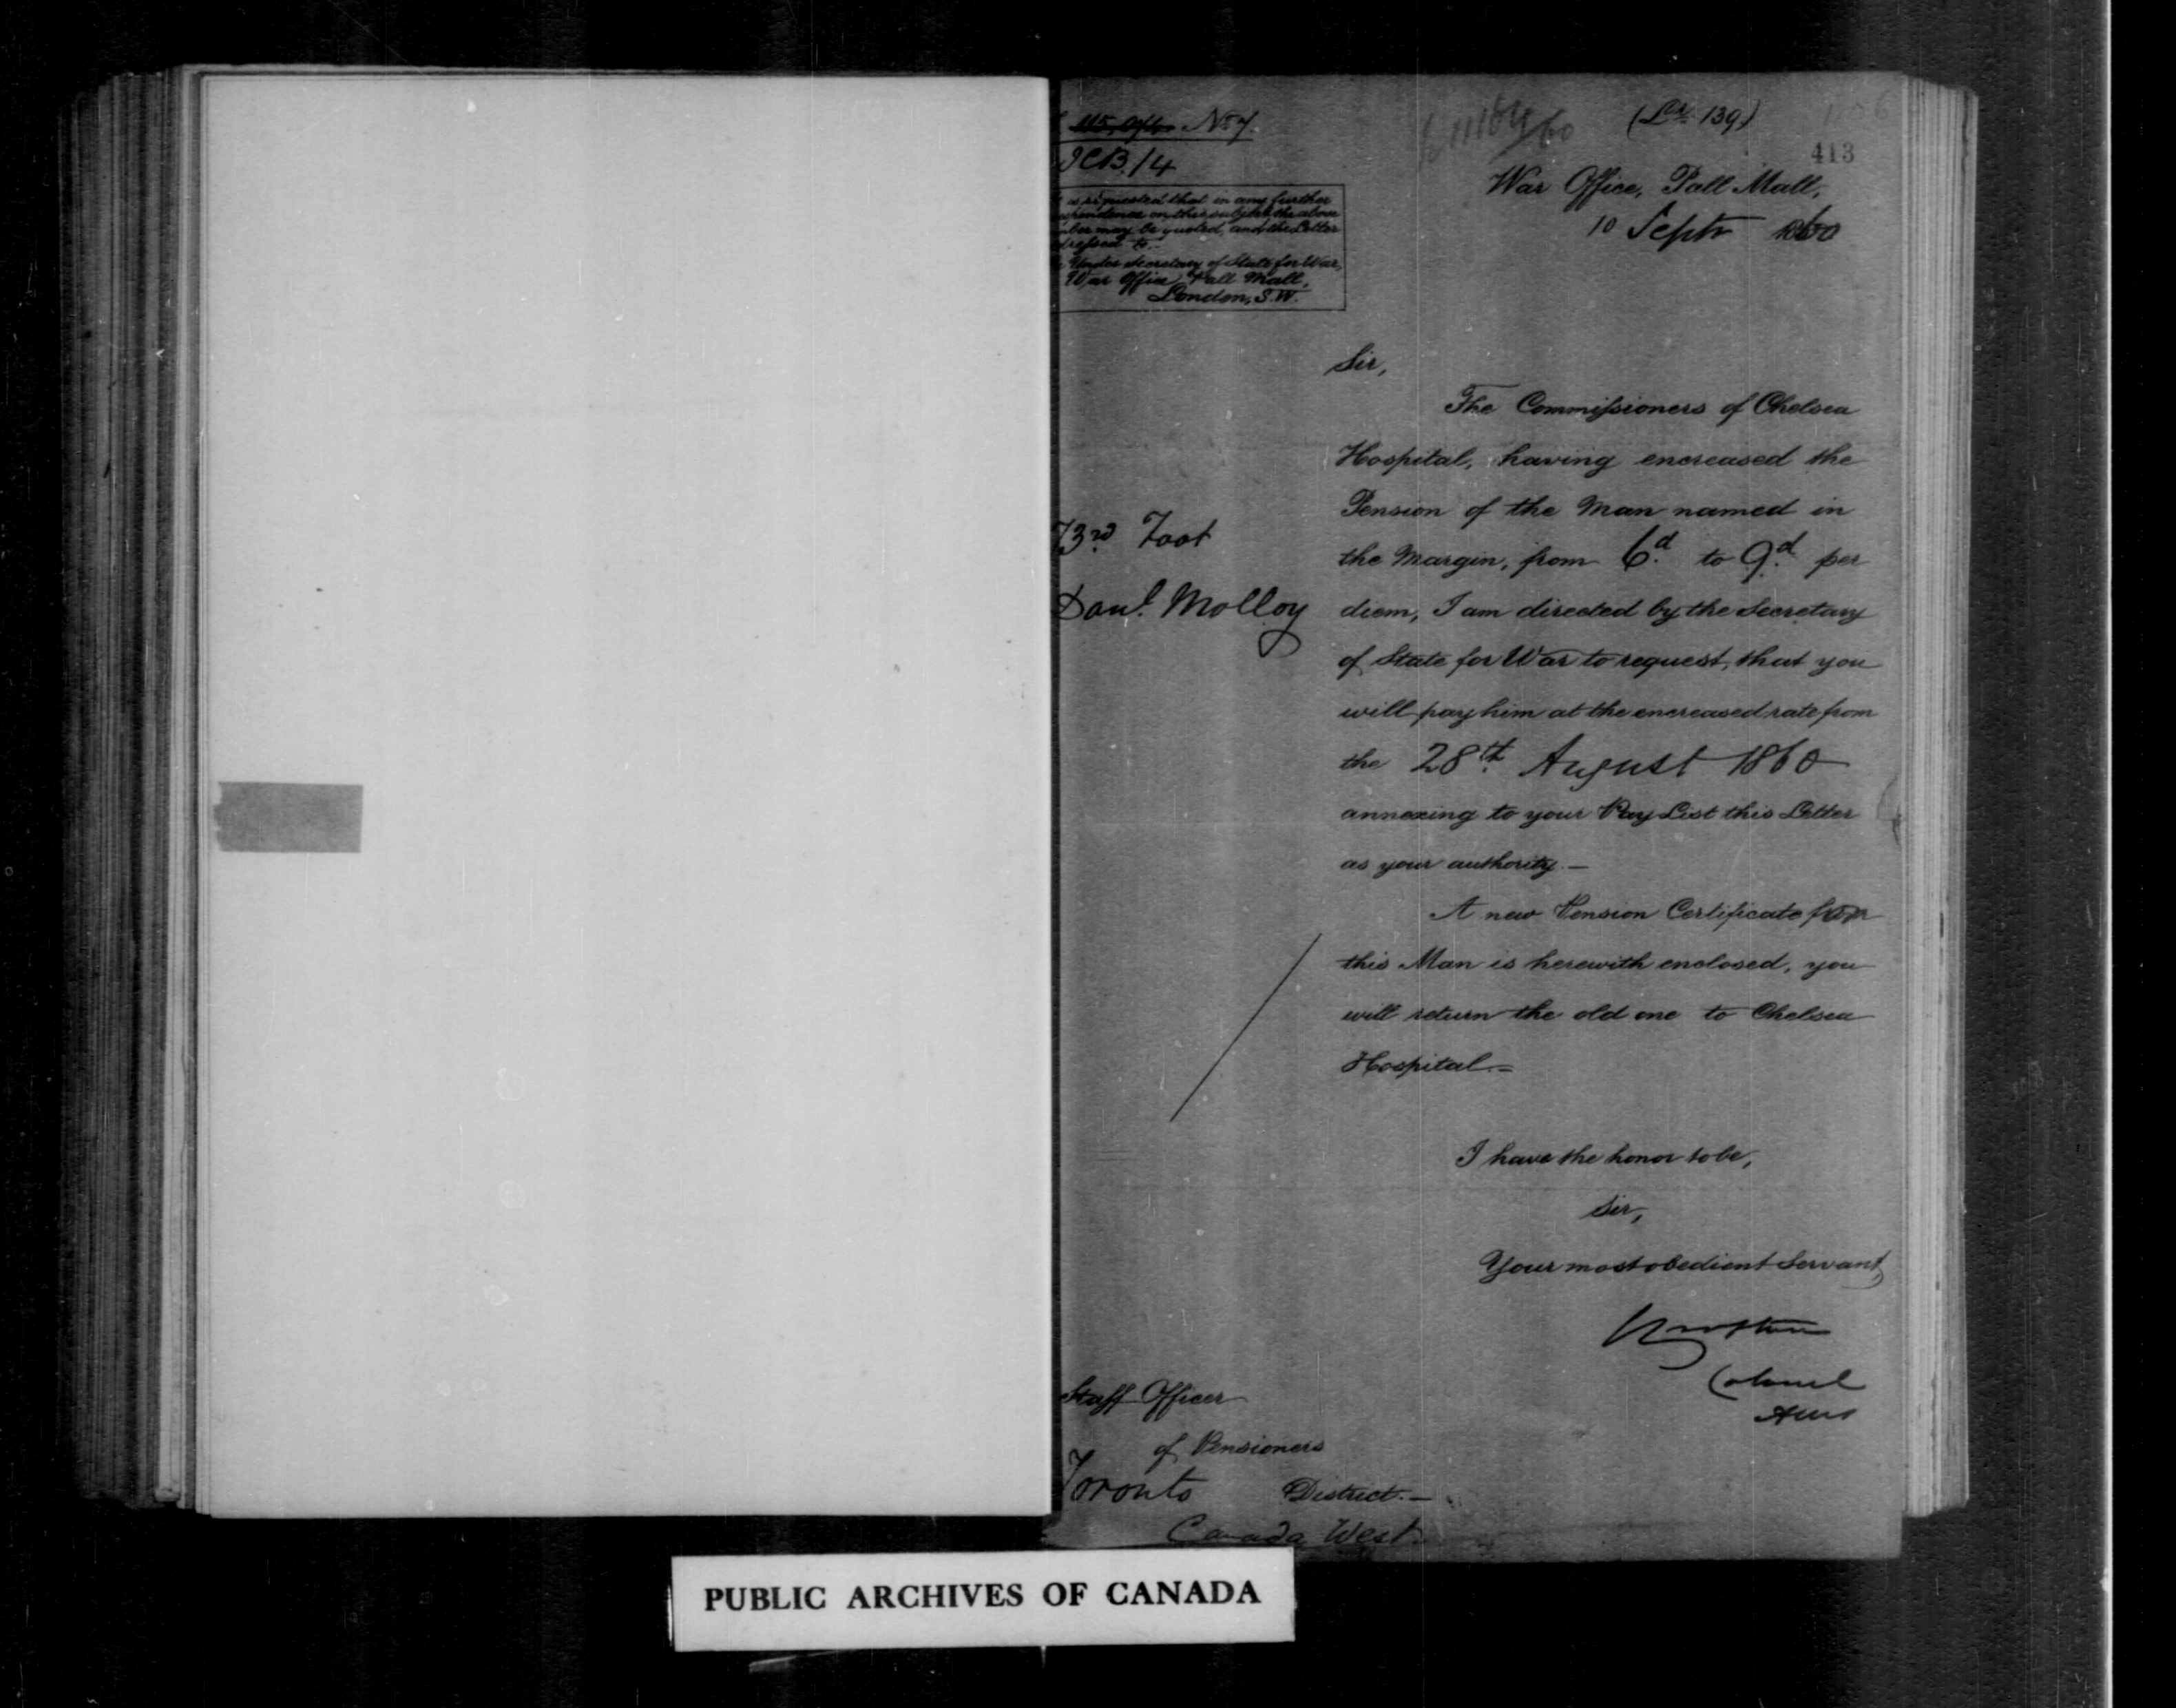 No. 7.
CB./4
is requested that in any further
correspondence on this subject the above
number may be quoted, and the Letter
addressed to:-
Under Secretary of State for War,
War Office, Pall Mall,
London, S.W.
(Lr. 139)
413
War Office, Pall Mall,
10 Septr 1860
Sir,
The Commissioners of Chelsea
Hospital, having encreased the
Pension of the Man named in
the Margin, from 6d. to 9d. per
diem, I am directed by the Secretary
of State for War to request, that you
will pay him at the encreased rate from
the 28th August 1860
annexing to your Pay List this Letter
as your authority.—
73rd Foot
Danl. Molloy
A new Pension Certificate for
this Man is herewith enclosed, you
will return the old one to Chelsea
Hospital.=
I have the honor to be,
Sir,
Your most obedient Servant,
Colonel
Staff Officer
of Pensioners
Toronto District.—
Canada West.
PUBLIC ARCHIVES OF CANADA